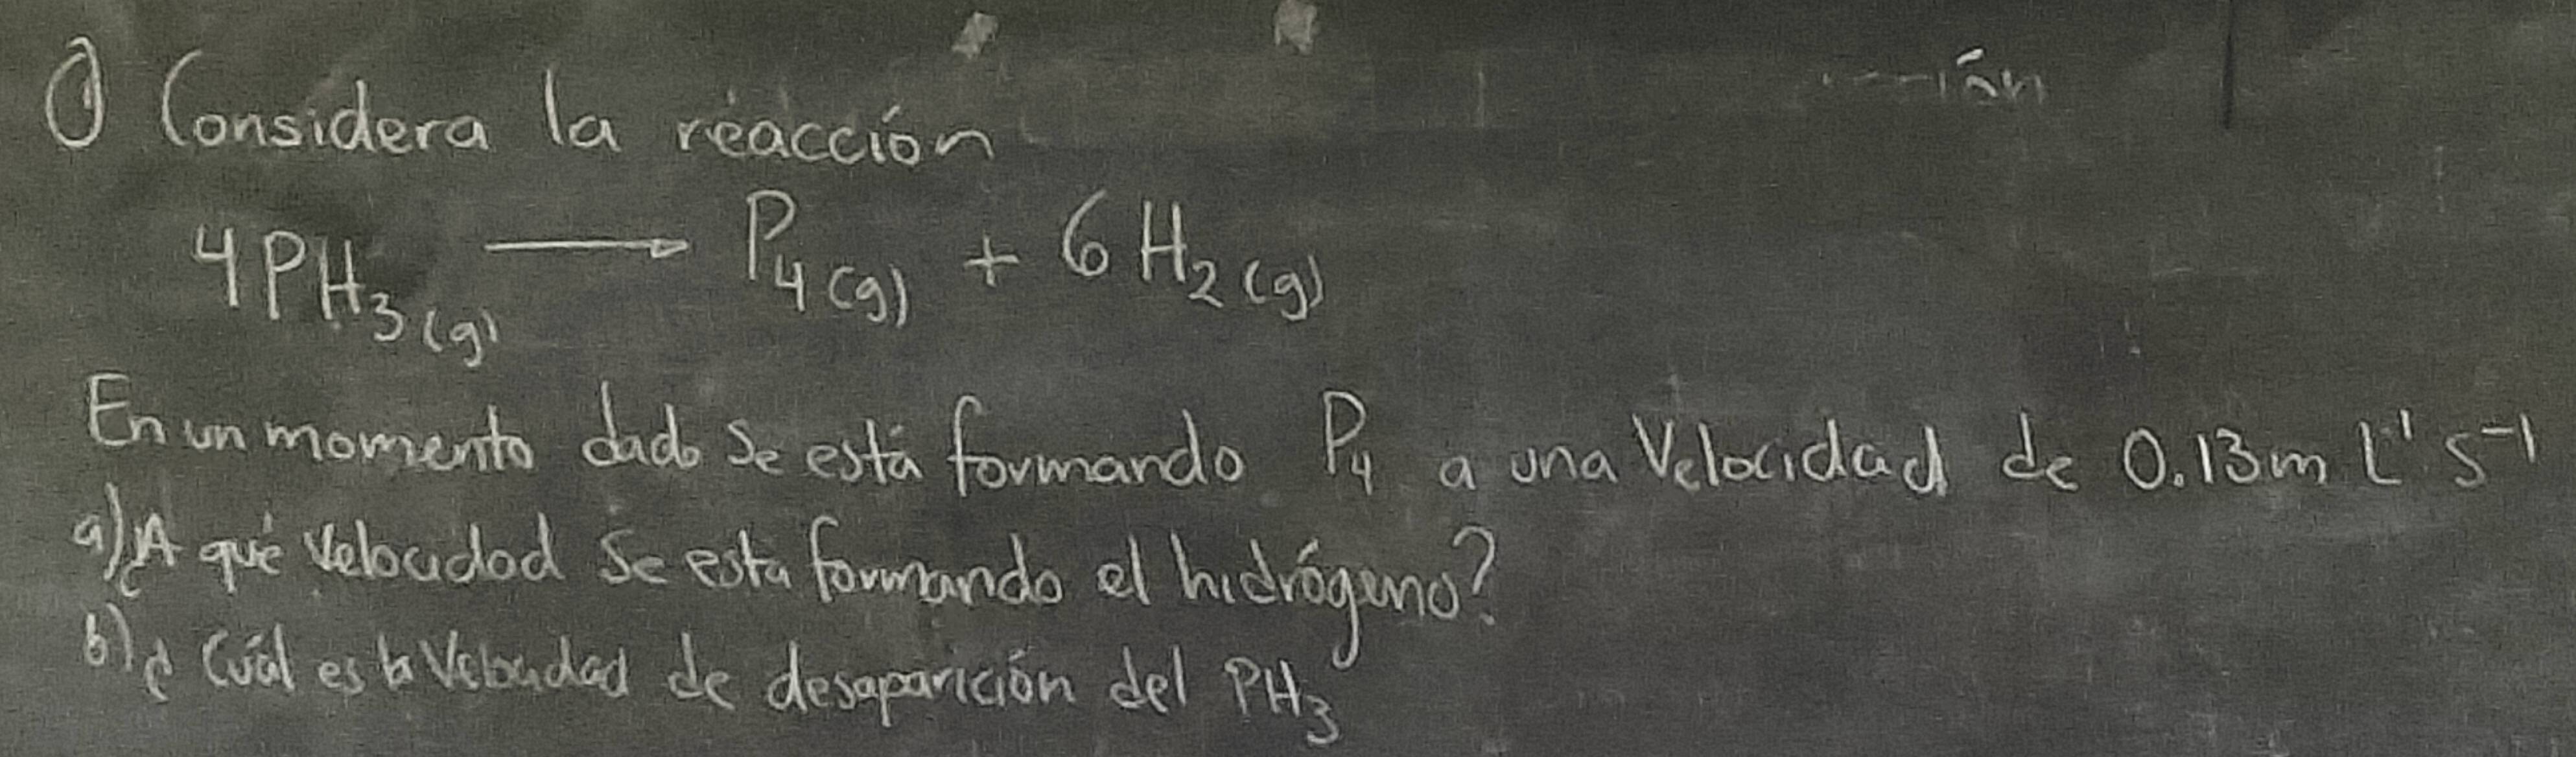 ① Considera la reacción
4PH₃(g) → P₄(g) + 6H₂(g)
En un momento dado se está formando P₄ a una Velocidad de 0.13m L⁻¹ S⁻¹
a)¿A qué velocidad se esta formando el hidrógeno?
b)¿ Cuál es la Velocidad de desaparición del PH₃